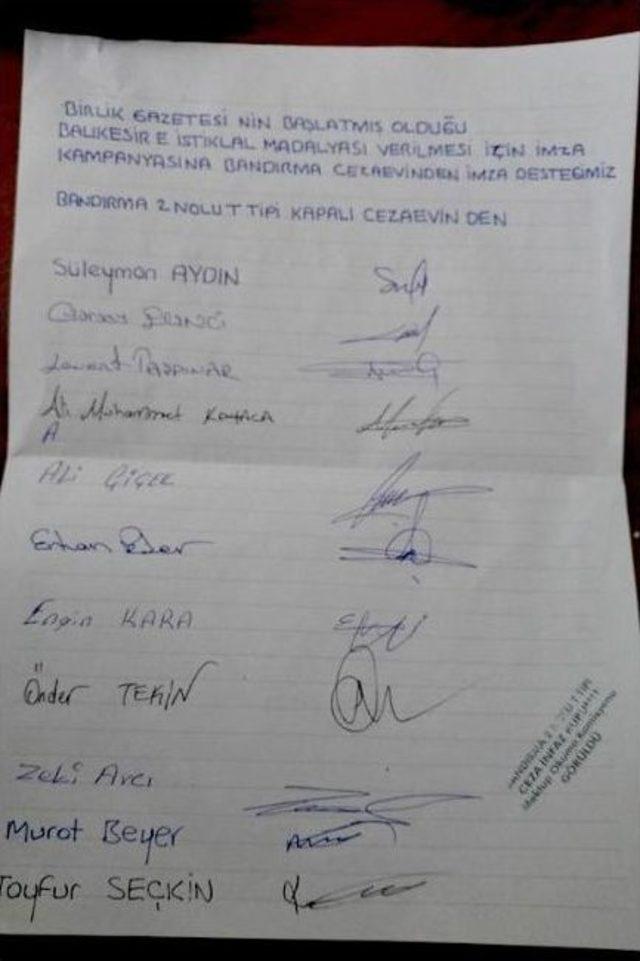 BİRLİK GAZETESİ NİN BAŞLATMIŞ OLDUĞU
BALIKESİR E İSTİKLAL MADALYASI VERİLMESİ İÇİN İMZA
KAMPANYASINA BANDIRMA CEZAEVİNDEN İMZA DESTEĞİMİZ
BANDIRMA 2 NOLU T TİPİ KAPALI CEZAEVİN DEN
Süleyman AYDIN
Levent TAŞPINAR
Ali Muhammet
A
ALİ ÇİÇEK
Erhan
Engin KARA
Önder TEKİN
Zeki Avcı
Murat Beyer
Tayfur SEÇKİN
BANDIRMA 2 NOLU T TİPİ
CEZA İNFAZ KURUMU
Mektup Okuma Komisyonu
GÖRÜLDÜ